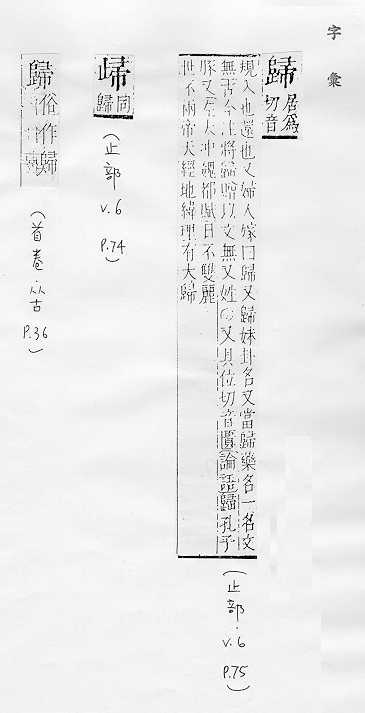 字彙
歸 居為切音
規入也還也又婦人嫁曰歸又歸妹卦名又當歸藥名一名文
無古今注將歸贈以文無又姓〇又具位切音匱論語歸孔子
豚又左太沖魏都賦日不雙麗
世不兩帝天經地緯理有大歸
(止部.v.6 P.75)
歸 同歸
(止部 v.6 P.74)
歸 俗作歸
(首卷.从古 P.36)